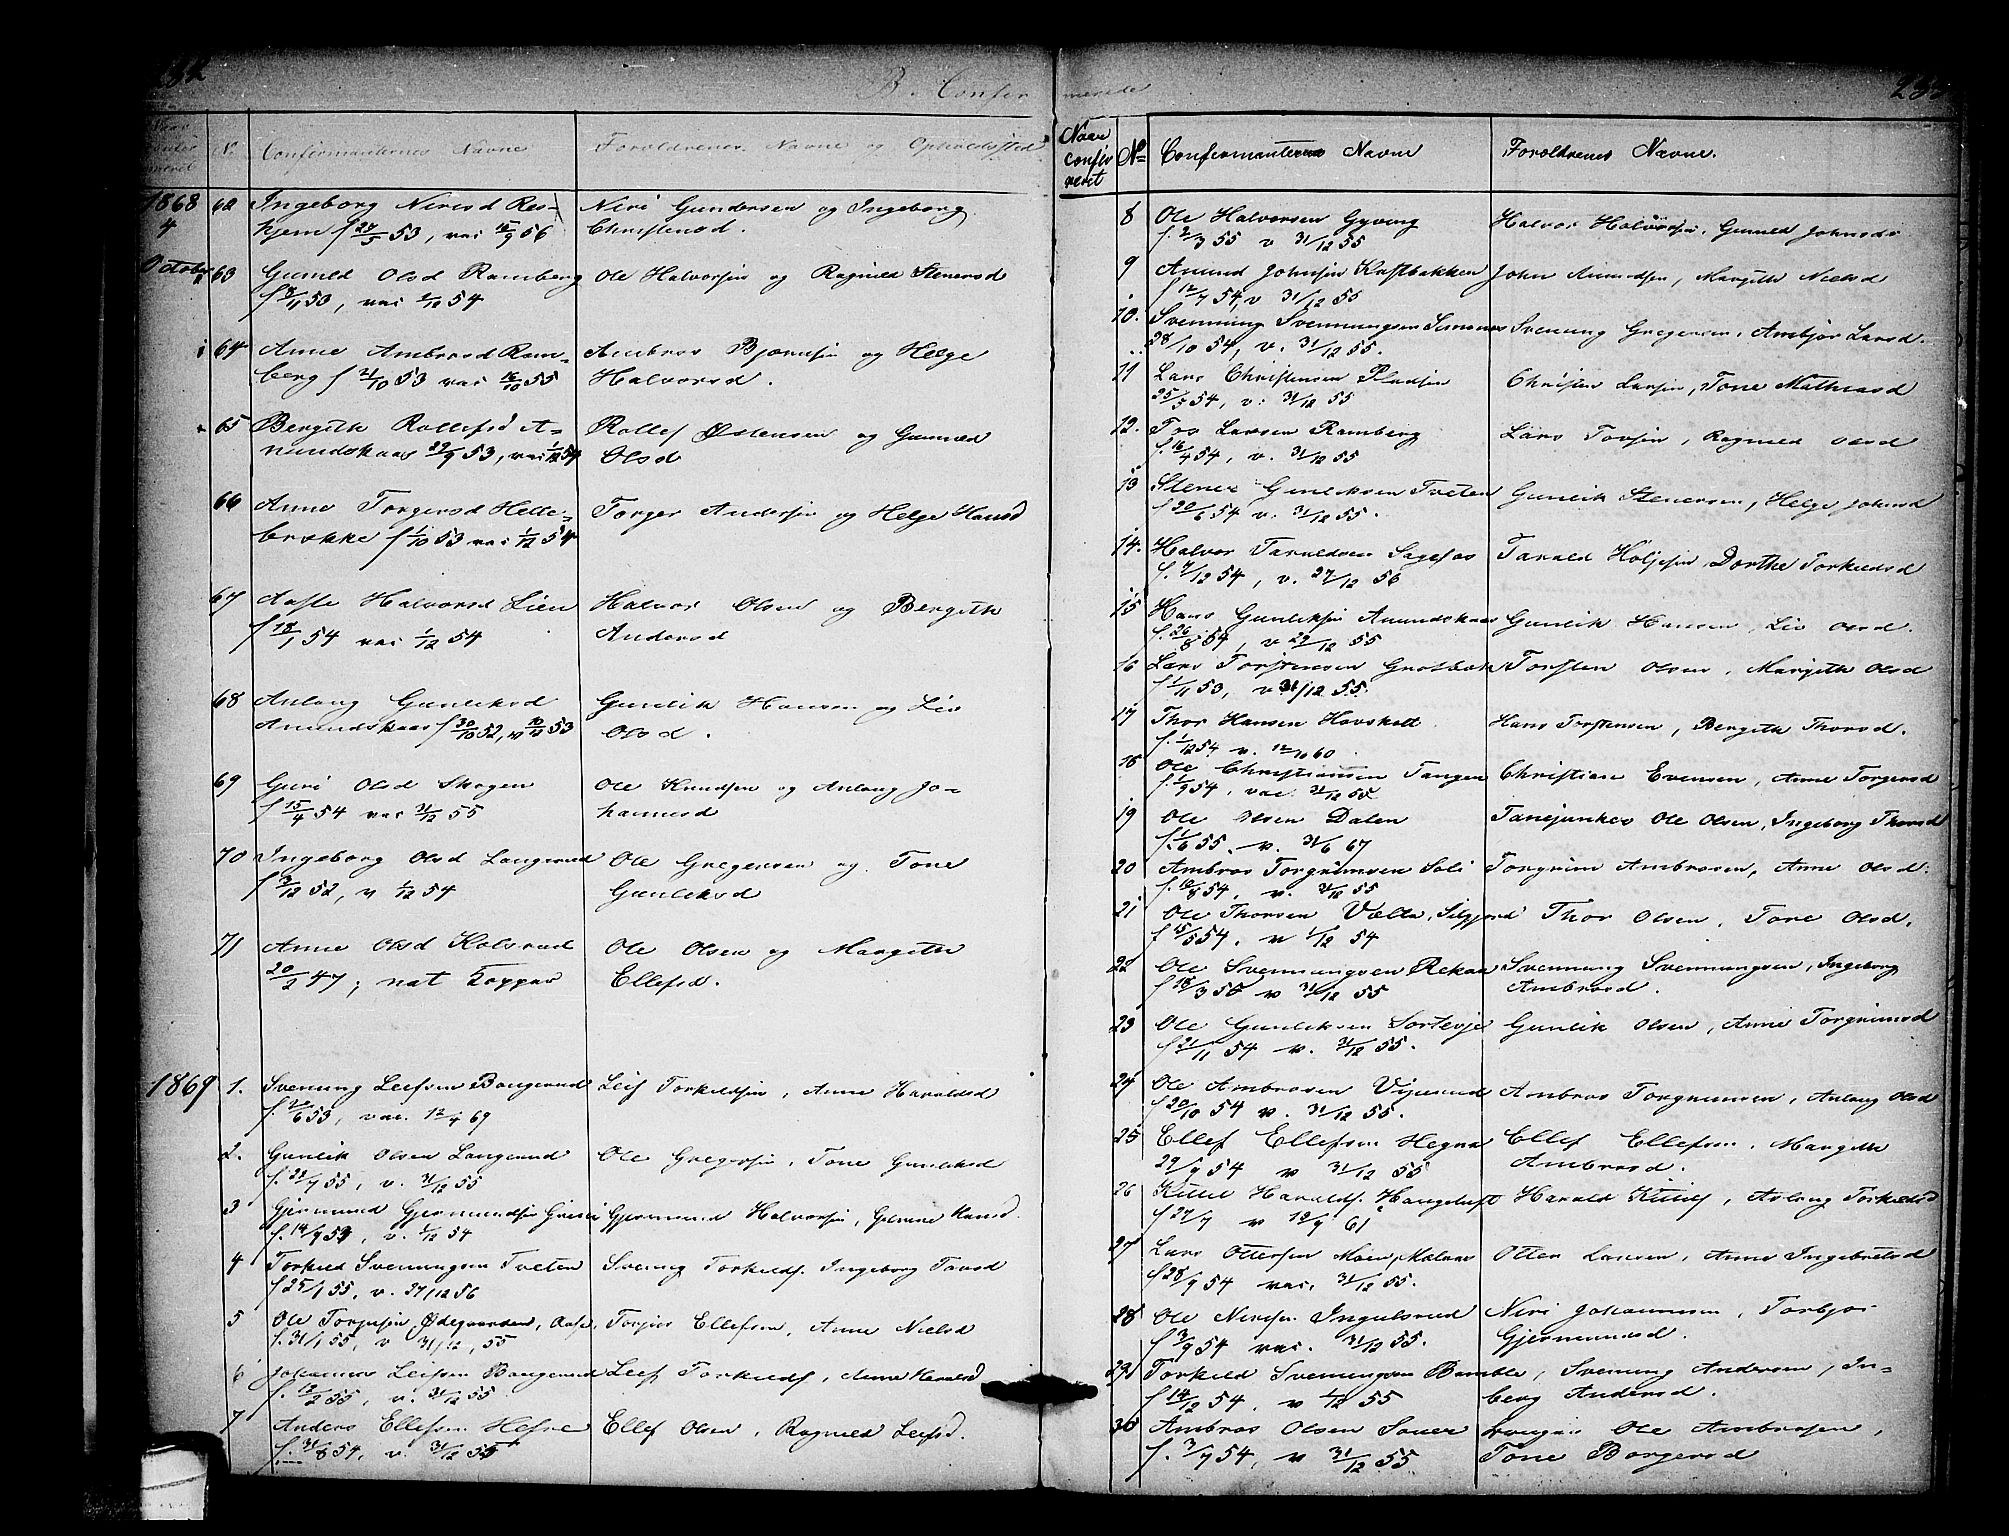 232
B. Confir
Confirmanternes Navne
Forældrenes Navne og Opholdssted
No
1868
4
October
62 Ingeborg Niresd Res- Niri Gundersen og Ingeborg
hjem f 27/5 53, vac 16/9 56 Christensd.
63 Gunild Olsd Ramberg Ole Halvorsen og Ragnild Stenersd
f 3/11 53, vac 1/12 54
64 Anne Ambrosd Ram- Ambros Bjørnsen og Helge
berg f 21/10 53 vac 16/10 55 Halvorsd.
65 Bergith Rollefsd A- Rollef Østensen og Gunild
mundskaas 29/9 53, vac 1/12 54 Olsd
66 Anne Torgersd Helle- Torger Andersen og Helge Hansd
brække f 1/10 53 vac 1/12 54
67 Aaste Halvorsd Lien Halvor Olsen og Bergith
f 18/1 54 vac 1/12 54 Andersd
68 Aslaug Gunliksd Gunlik Hansen og Liv
Amundskaas f 30/10 52, v 10/12 53 Olsd.
69 Guri Olsd Skogen Ole Knudsen og Aslaug Jo-
f 15/4 54 vac 31/12 55 hannesd
70 Ingeborg Olsd Langerud Ole Gregersen og Tone
f 3/12 52, v 1/12 54 Gunliksd
71 Anne Olsd Kolsrud Ole Olsen og Margith
20/2 47; nat Kopper Ellefsd.
1869 1. Svenung Leifsen Baugerud Leif Torkildsen, Anne Haraldsd
f. 20/6 53, vac. 12/4 69
2. Gunlik Olsen Langerud Ole Gregersen, Tone Gunliksd
f. 22/7 55, v. 31/12 55
3 Gjermund Gjermundsen Gjermund Halvorsen, Hansd.
f. 14/9 54, v. 1/12 54
4 Torkild Svenungsen Tveten Svenung Torkilds. Ingeborg Tarsd
f 25/1 55, v. 27/12 56
5 Ole Torjusen Ødegaarden, Torjus Ellefsen, Anne Nielsd
f. 31/1 55, v 31/12, 55
6 Johannes Leifsen Baugerud Leif Torkilds, Anne Haraldsd
f. 12/2 55, v. 31/12 55
7 Anders Ellefsen Ellef Olsen, Ragnild Leifsd.
f. 31/8 54, v. 31/12 55
merede
233
Naar confirmeret No Confirmanternes Navne Forældrenes Navne.
8 Ole Halvorsen Gyving Halvor Halvorsen, Gunild Johnsd.
f. 2/3 55 v 31/12 55
9 Amund Johnsen Kostbakken John Amundsen, Margith Nielsd
f 12/7 54, v 31/12 55
10. Svenning Svennungsen Svenung Gregersen, Ambjør Larsd.
28/10 54, v. 31/12 55.
11 Lars Christensen Pladsen Christen Larsen, Tone Mathiasd
25/5 54, v: 31/12 55
12. Tor Larsen Ramberg Lars Torsen, Ragnild Olsd
f. 16/4 54, v. 31/12 55
13 Stener Gunliksen Tveten Gunlik Stenersen, Helge Johnsd
f 20/6 54 v. 31/12 55.
14. Halvor Taraldsen Sagefos Tarald Holjesen, Dorthe Torkildsd
f. 7/12 54, v. 27/12 56
15 Hans Gunliksen Amundskaas Gunlik Hansen, Liv Olsd.
f. 26/8 54, v 29/12 55
16 Lars Torstensen Grosbæk Torsten Olsen, Margith Olsd
f 1/11 53, v 31/12 55.
17 Thor Hansen Hovskott Hans Torstensen, Bergith Thorsd.
f. 1/12 54 v. 12/10 60.
18 Ole Christiansen Tangen Christian Evensen, Anne Torgersd
f. 1/9 54, vac. 31/12 55
19 Ole Olsen Dalen Fanejunker Ole Olsen, Ingeborg Thorsd
f. 1/6 55. v. 31/6 67
20 Ambros Torgrimsen Soli Torgrim Ambrosen, Anne Olsd.
f. 10/8 54, v. 31/12 55
21 Ole Thorsen Vælta, Silgjord Thor Olsen, Tore Olsd.
f 15/5 54. v 1/12 54
22 Ole Svennungsen Rekaa Svennung Svennungsen, Ingeborg
f 16/3 55 v 31/12 55 Ambrosd.
23 Ole Gunliksen Sortevje Gunlik Olsen, Anne Torgrimsd
f 21/11 54 v. 31/12 55.
24 Ole Ambrosen Vijerud Ambros Torgrimsen, Aslaug Olsd
f 20/10 54 v. 31/12 55.
25 Ellef Ellefsen Hegna Ellef Ellefsen, Margith
29/9 54 v 31/12 55 Ambrosd.
26 Kittil Haralds. Haugetuft Harald Kittils, Aslaug Torkildsd
f 27/7 v 18/9 61
27 Lars Ottersen Moen, Otter Larsen, Anne Ingebretsd
f 28/9 54 vac. 31/12 55.
28 Ole Nirisen Ingulsrud Niri Johannesen, Torbjør
f 3/9 54 vac. 31/12 55. Gjermundsd.
29 Torkild Svenningsen Bamble, Svenung Andersen, In-
f 14/12 54. v 1/12 55 berg Andersd.
30 Ambros Olsen Sauer Ole Ambrosen,
f. 3/9 54, v 31/12 55 Tone Borgersd